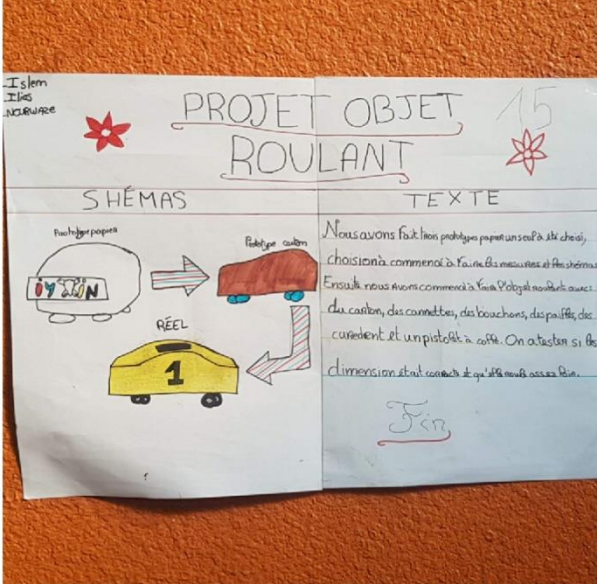 Islem
Ilias
NOURWARE
PROJET OBJET
15
ROULANT
SHÉMAS
TEXTE
Prototype papier
Prototype carton
RÉEL
1
Nous avons fait trois prototypes papier un seul à été choisi,
à commencé à faire les mesures et les shémas
Ensuite nous avons commencé à faire l'objet roulant avec
du carton, des cannettes, des bouchons, des pailles, des
curedent et un pistolet à colle. On a tester si les
dimension était correcte et qu'elle roule assez loin.
Fin